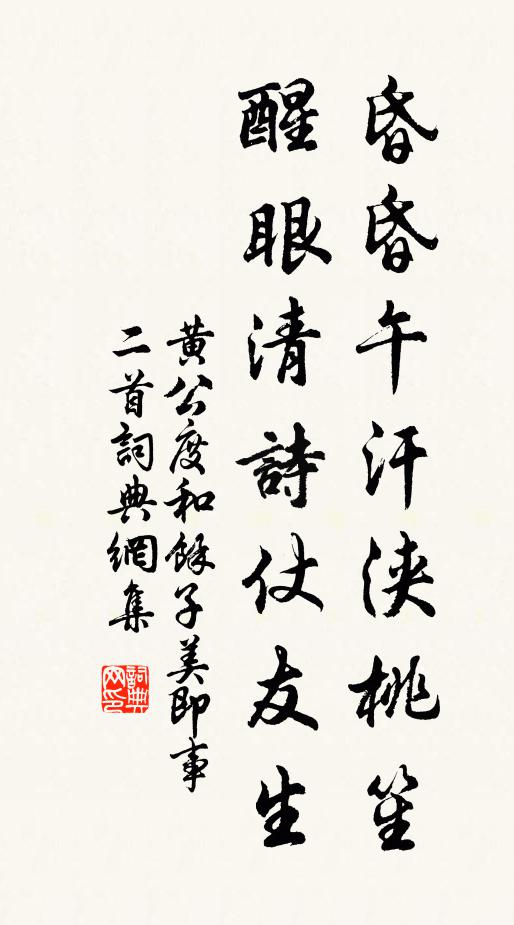 昏昏午汗浹桃笙
醒眼清詩仗友生
黄公度和餘子美即事
二首詞典網集
詞典网印